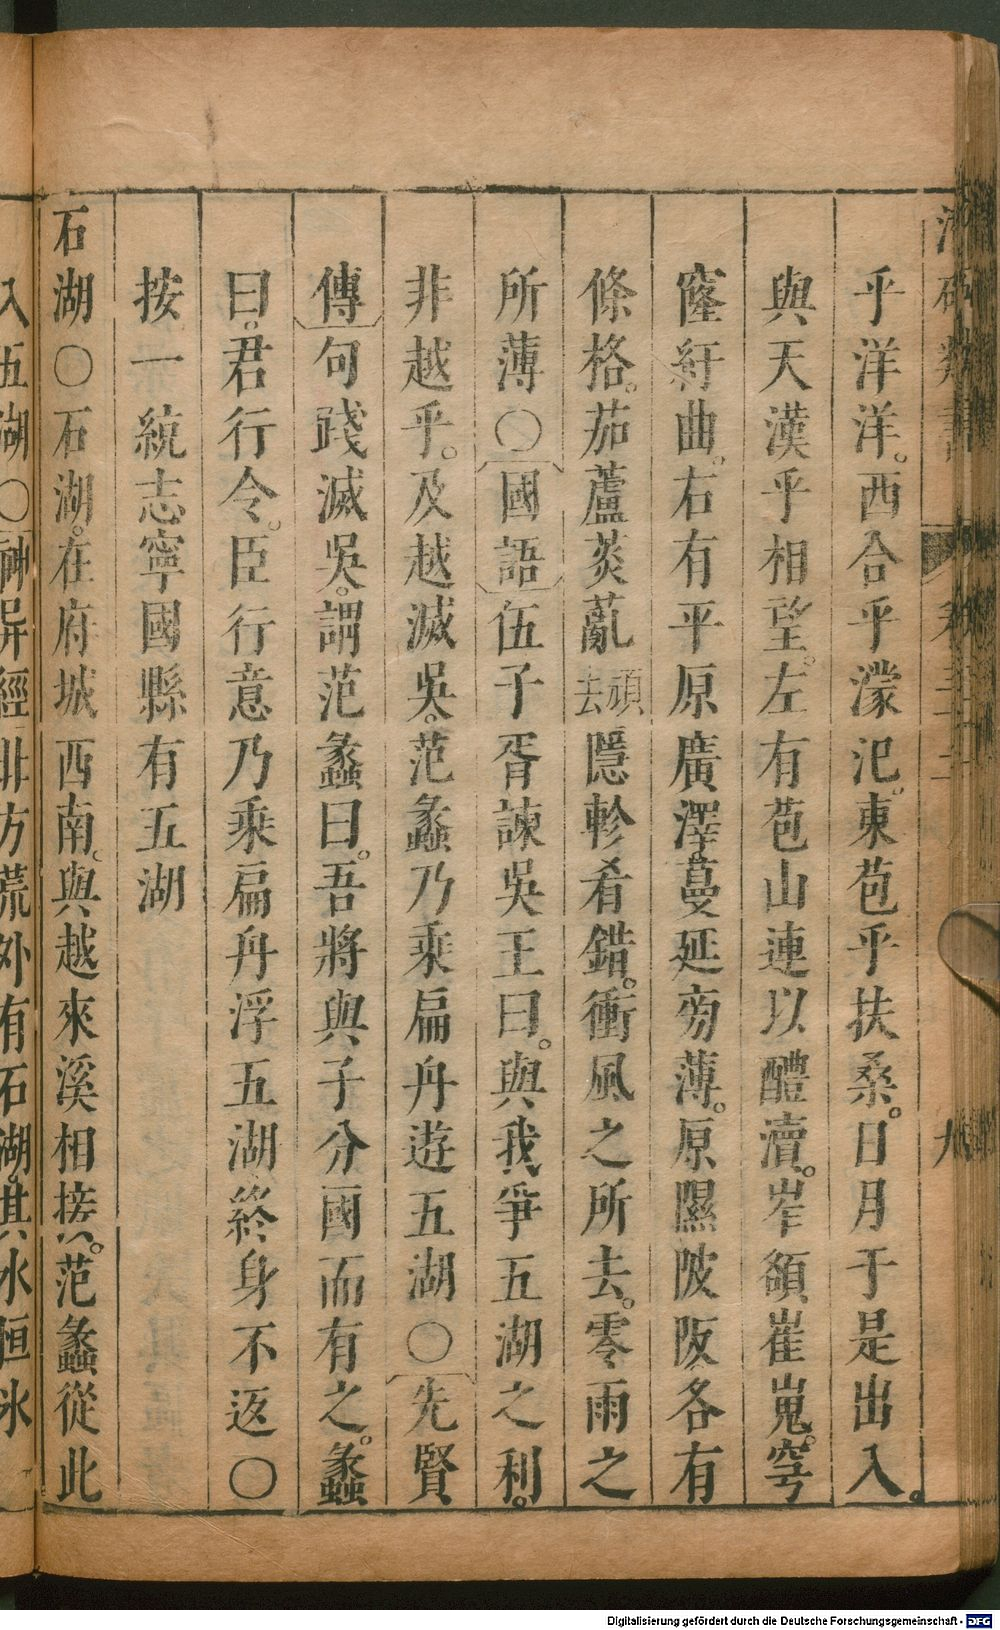 乎洋洋。西合乎濛汜。東苞乎扶桑。日月于是出入。
與天漢乎相望。左有苞山連以醴瀆。岞䪼崔嵬。穹
窿紆曲。右有平原廣澤。蔓延旁薄。原隰陂阪各有
條格。茄蘆菼亂去頑隱軫肴錯。衝風之所去。零雨之
所薄〇國語伍子胥諫吳王曰。與我爭五湖之利。
非越乎。及越滅吳。范蠡乃乘扁舟遊五湖〇先賢
傳句踐滅吳。謂范蠡曰。吾將與子分國而有之。蠡
曰。君行令。臣行意乃乘扁舟浮五湖終身不返〇
按一統志寧國縣有五湖
石湖〇石湖。在府城西南。與越來溪相接。范蠡從此
入五湖〇神異經北方荒外有石湖。其水恒冰
九
Digitalisierung gefördert durch die Deutsche Forschungsgemeinschaft - DFG